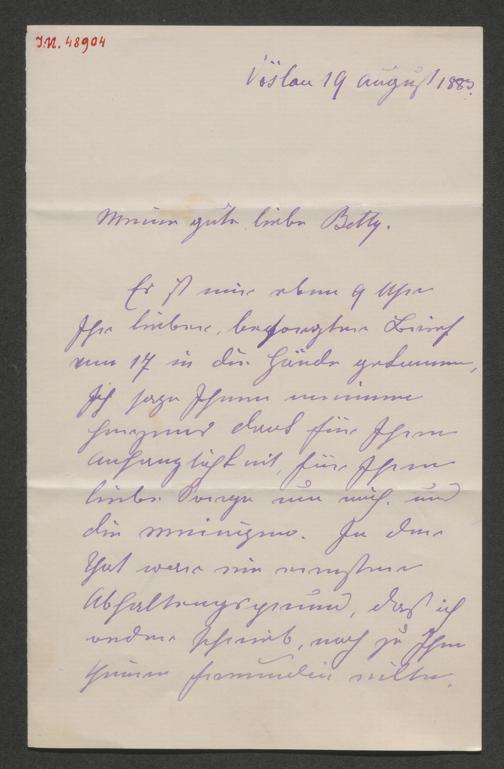 I.N. 48904
Vöslau 19 August 1883.
Meine gute liebe Betty.
Es ist mir eben 9 Uhr
Ihr lieber, besorgter Brief
vom 17 in die Hände gekommen,
Ich sage Ihnen meinen
Dank für Ihre
Anhänglichkeit, für Ihre
liebe Sorge um mich und
die meinigen. In der
That war ein ernster
Abhaltungsgrund, daß ich
weder schrieb, noch zu Ihn
Freundin eilte.